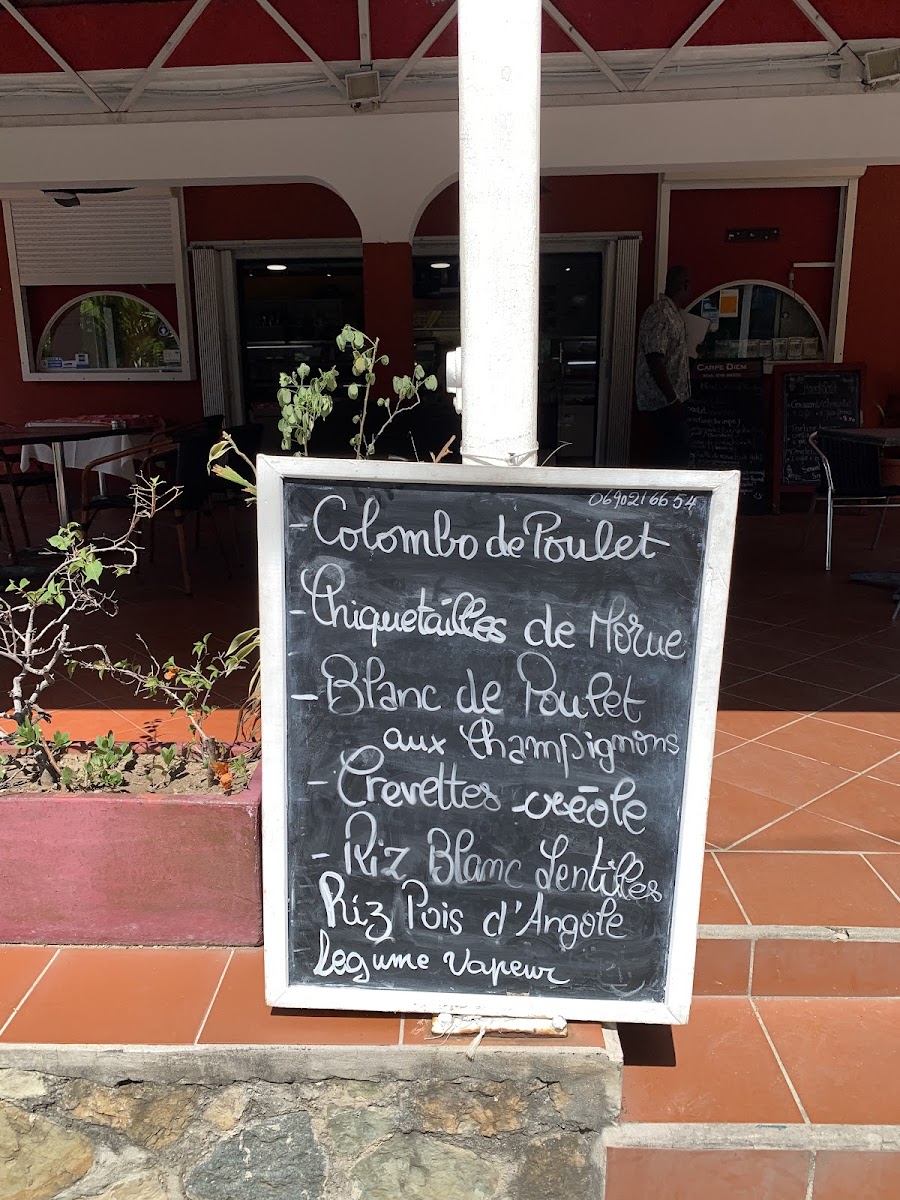 0690216654
- Colombo de Poulet
- Chiquetailles de Morue
- Blanc de Poulet
aux Champignons
- Crevettes créole
- Riz Blanc Lentilles
Riz Pois d'Angole
Legume Vapeur
CARPE DIEM